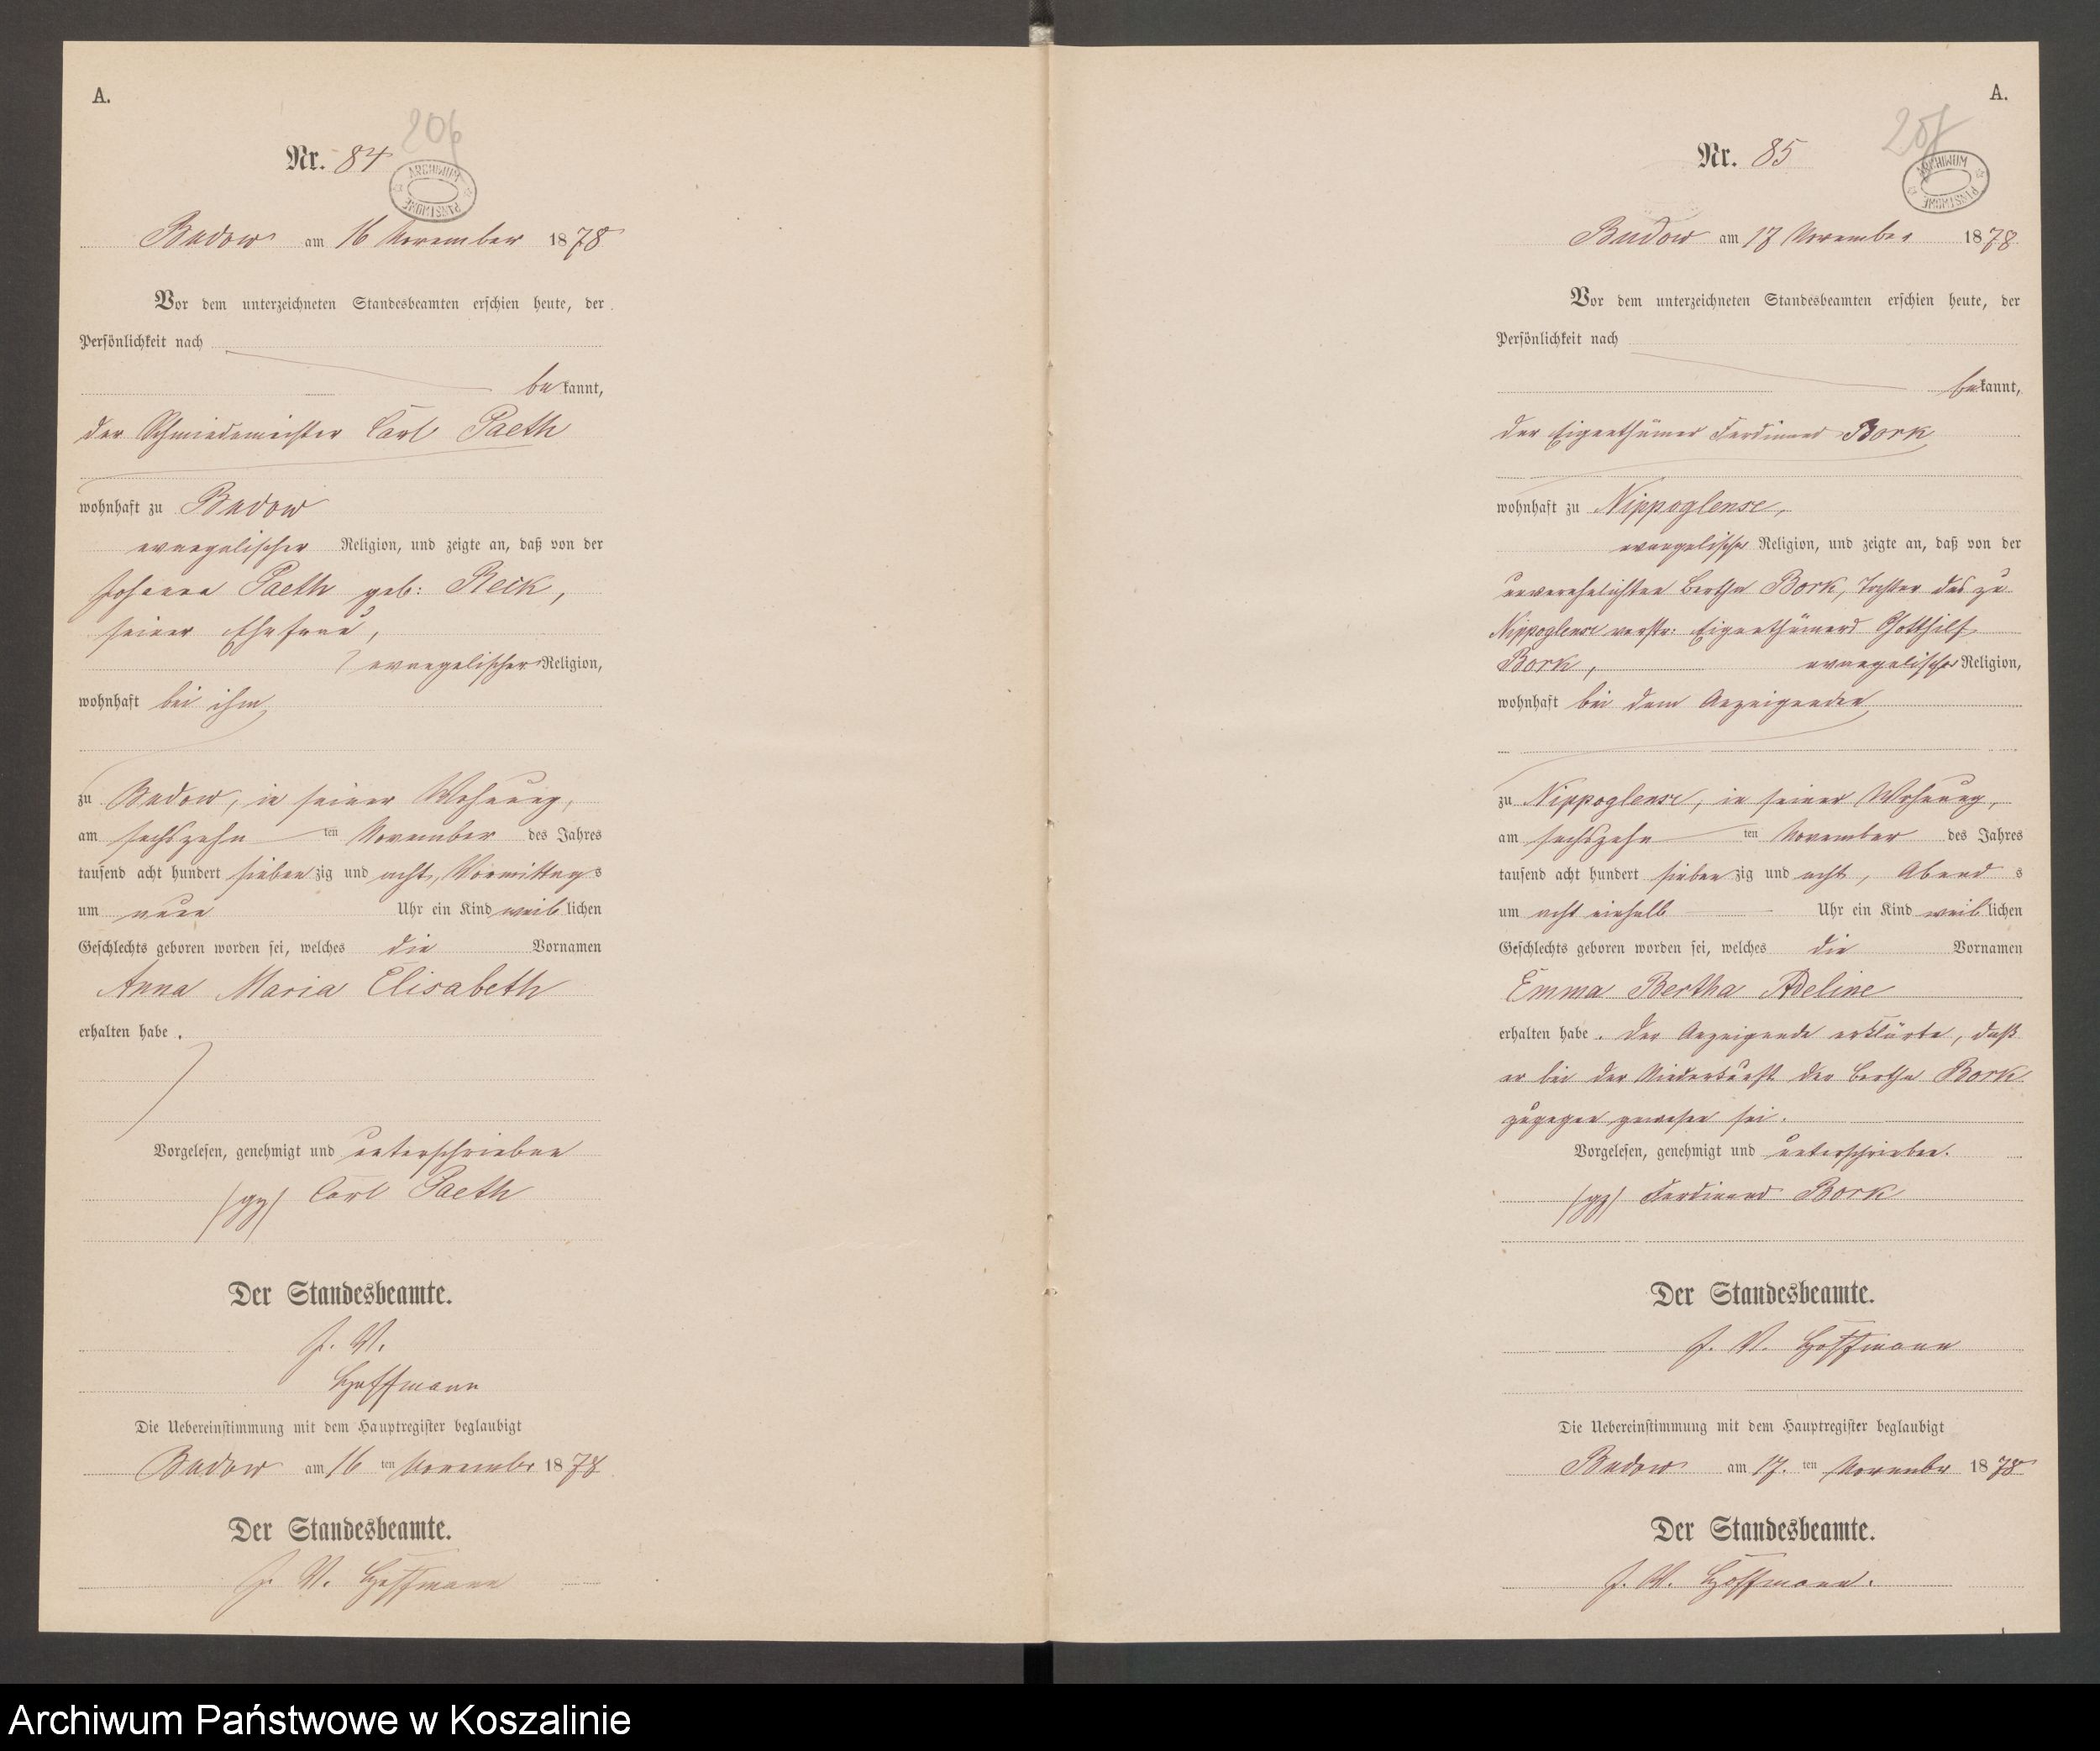 A.
206
Nr. 84
ARCHIWUM PAŃSTWOWE
Budow am 16 November 1878
Vor dem unterzeichneten Standesbeamten erschien heute, der
Persönlichkeit nach
bekannt,
der Schmiedemeister Carl Paeth
wohnhaft zu Budow
evangelischer Religion, und zeigte an, daß von der
Johanna Paeth geb: Reck,
seiner Ehefrau,
evangelischer Religion,
wohnhaft bei ihm
zu Budow, in seiner Wohnung,
am sechszehn ten November des Jahres
tausend acht hundert siebenzig und acht, Vormittags
um neun Uhr ein Kind weiblichen
Geschlechts geboren worden sei, welches die Vornamen
Anna Maria Elisabeth
erhalten habe.
Vorgelesen, genehmigt und unterschrieben
(gz) Carl Paeth
Der Standesbeamte.
J. V.
Hoffmann
Die Uebereinstimmung mit dem Hauptregister beglaubigt
Budow am 16 ten November 1878
Der Standesbeamte.
J. V. Hoffmann
A.
207
Nr. 85
ARCHIWUM PAŃSTWOWE
Budow am 17 November 1878
Vor dem unterzeichneten Standesbeamten erschien heute, der
Persönlichkeit nach
bekannt,
der Eigenthümer Ferdinand Bork
wohnhaft zu Nippoglense,
evangelischer Religion, und zeigte an, daß von der
unverehelichten Bertha Bork, Tochter des zu
Nippoglense verstr: Eigenthümers Gotthilf
Bork, evangelischer Religion,
wohnhaft bei dem Anzeigenden
zu Nippoglense, in seiner Wohnung,
am sechszehn ten November des Jahres
tausend acht hundert siebenzig und acht, Abends
um acht einhalb Uhr ein Kind weiblichen
Geschlechts geboren worden sei, welches die Vornamen
Emma Bertha Adeline
erhalten habe. Der Anzeigende erklärte, daß
er bei der Niederkunft der Bertha Bork
zugegen gewesen sei.
Vorgelesen, genehmigt und unterschrieben.
(gz) Ferdinand Bork
Der Standesbeamte.
J. V. Hoffmann
Die Uebereinstimmung mit dem Hauptregister beglaubigt
Budow am 17. ten November 1878
Der Standesbeamte.
J. V. Hoffmann.
Archiwum Państwowe w Koszalinie